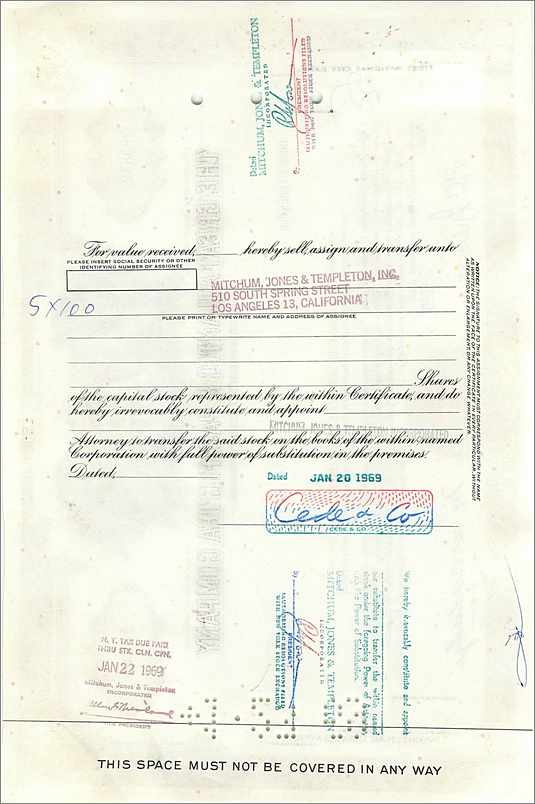 Dated
MITCHUM, JONES & TEMPLETON
INCORPORATED
PRESIDENT
AUTHORIZED RESOLUTIONS FILED
WITH NEW YORK STOCK EXCHANGE
For value received, hereby sell, assign and transfer unto
PLEASE INSERT SOCIAL SECURITY OR OTHER
IDENTIFYING NUMBER OF ASSIGNEE
MITCHUM, JONES & TEMPLETON, INC.
510 SOUTH SPRING STREET
LOS ANGELES 13, CALIFORNIA
5X100
PLEASE PRINT OR TYPEWRITE NAME AND ADDRESS OF ASSIGNEE
Shares
of the capital stock represented by the within Certificate, and do
hereby irrevocably constitute and appoint
MITCHUM, JONES & TEMPLETON INCORPORATED
Attorney to transfer the said stock on the books of the within named
Corporation with full power of substitution in the premises.
Dated,
NOTICE: THE SIGNATURE TO THIS ASSIGNMENT MUST CORRESPOND WITH THE NAME
AS WRITTEN UPON THE FACE OF THE CERTIFICATE, IN EVERY PARTICULAR, WITHOUT
ALTERATION OR ENLARGEMENT, OR ANY CHANGE WHATEVER.
Dated JAN 20 1969
Cede & Co.
CEDE & CO.
We hereby irrevocably constitute and appoint
our substitute to transfer the within named
stock under the foregoing Power of Attorney,
with like Power of Substitution.
Dated
MITCHUM, JONES & TEMPLETON
INCORPORATED
By
PRESIDENT
AUTHORIZED RESOLUTIONS FILED
WITH NEW YORK STOCK EXCHANGE
N. Y. TAX DUE PAID
THRU STK. CLR. CPN.
JAN 22 1969
Mitchum, Jones & Templeton
INCORPORATED
VICE PRESIDENT
THIS SPACE MUST NOT BE COVERED IN ANY WAY